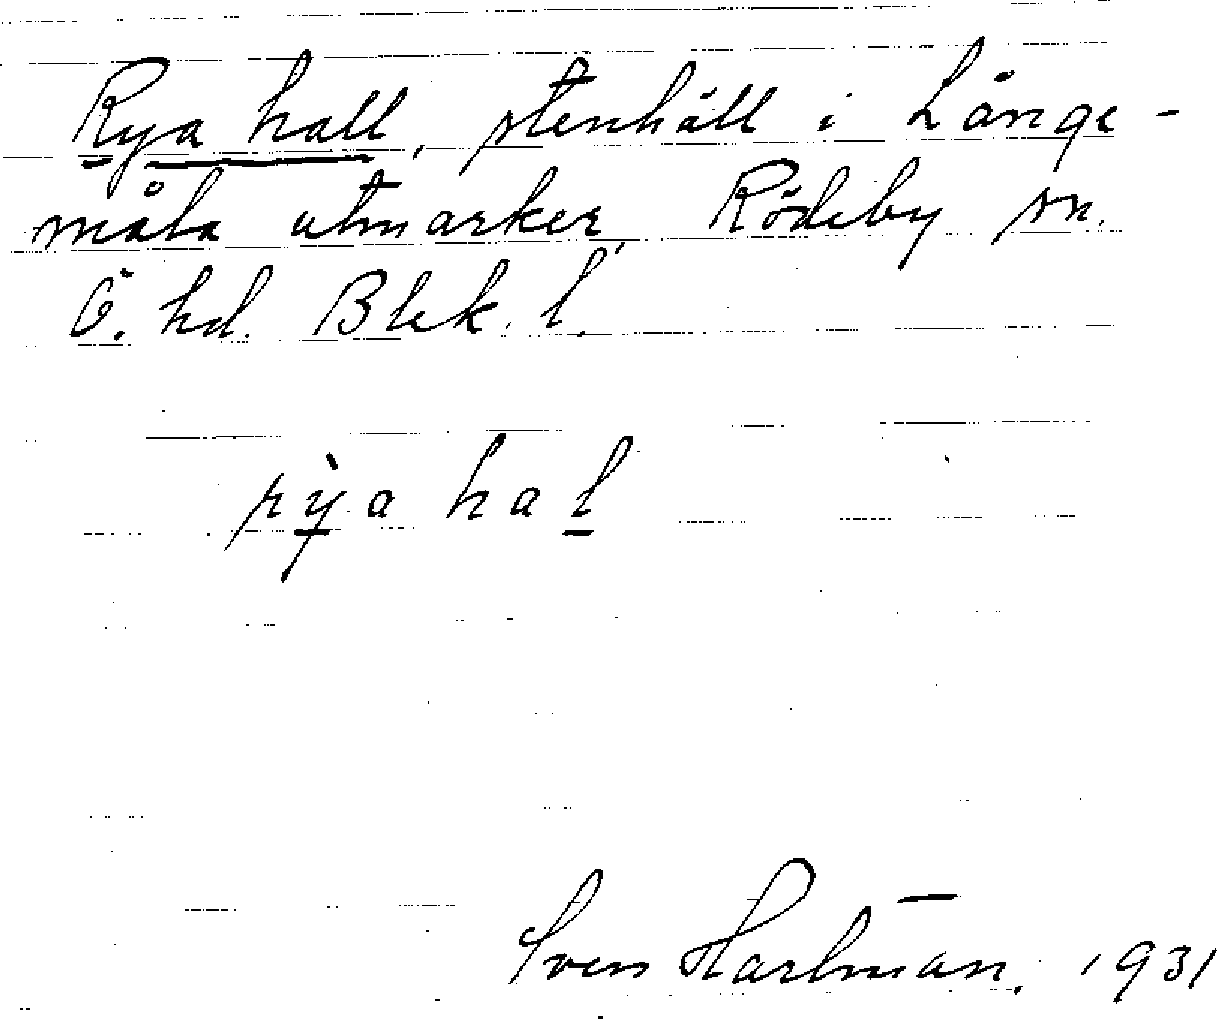 Rya hall, stenhäll i Långe-
måla utmarker, Rödeby sn.
Ö. hd. Blek. l.
rỳa hal
Sven Hartman. 1931